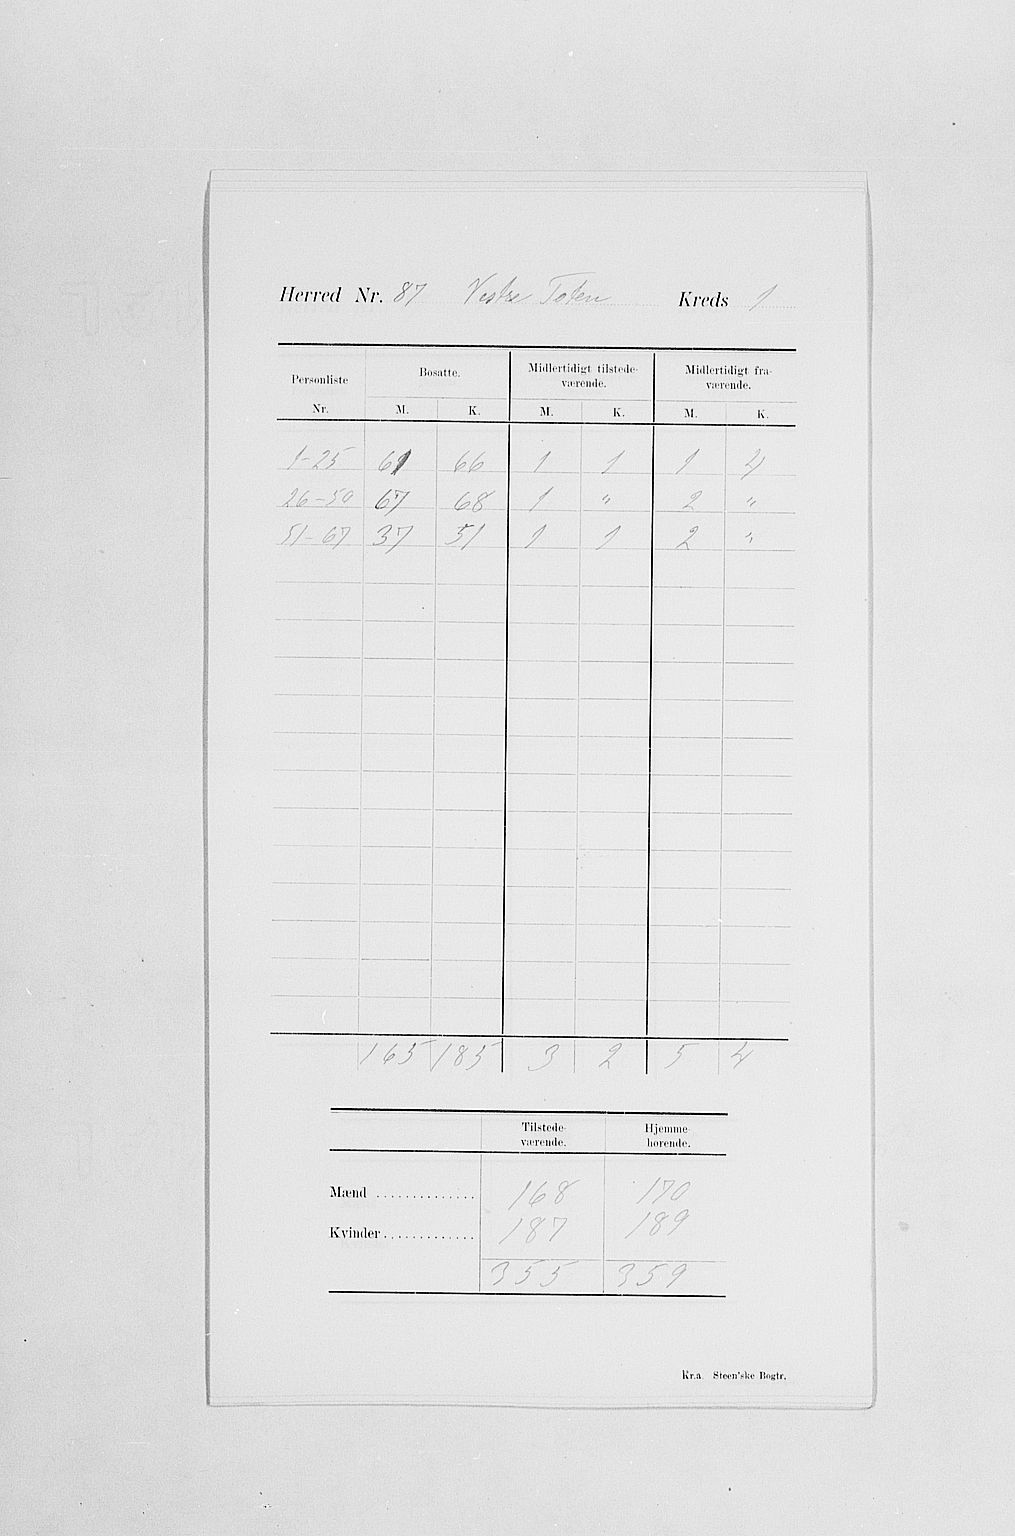 Herred Nr. 87 Vestre Toten Kreds 1
Personliste Nr. Bosatte. Midlertidigt tilstede- værende. Midlertidigt fra- værende.
M. K. M. K. M. K.
1-25 61 66 1 1 1 4
26-50 67 68 1 " 2 "
51-67 37 51 1 1 2 "
165 185 3 2 5 4
Tilstede- værende. Hjemme- hørende.
Mænd .............. 168 170
Kvinder ............. 187 189
355 359
Kr.a. Steen'ske Bogtr.